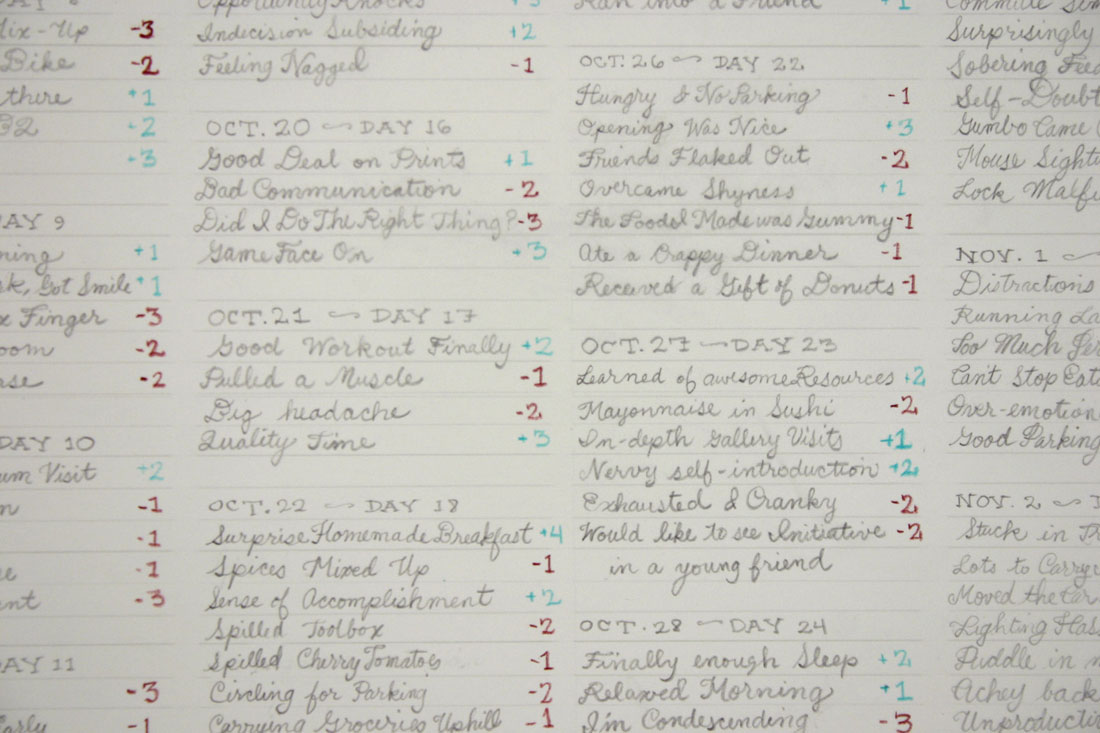 Mix-Up -3
Bike -2
there +1
+2
+3
DAY 9
+1
Got Smile +1
Finger -3
-2
-2
DAY 10
Visit +2
-1
-1
-1
-3
DAY 11
-3
-1
Opportunity Knocks +3
Indecision Subsiding +2
Feeling Nagged -1
OCT. 20 ~ DAY 16
Good Deal on Prints +1
Bad Communication -2
Did I Do The Right Thing? -3
Game Face On +3
OCT. 21 ~ DAY 17
Good Workout Finally +2
Pulled a Muscle -1
Big headache -2
Quality Time +3
OCT. 22 ~ DAY 18
Surprise Homemade Breakfast +4
Spices Mixed Up -1
Sense of Accomplishment +2
Spilled Toolbox -2
Spilled Cherry Tomatoes -1
Circling for Parking -2
Carrying Groceries Uphill -1
Ran into a Friend +1
OCT. 26 ~ DAY 22
Hungry & No Parking -1
Opening Was Nice +3
Friends Flaked Out -2
Overcame Shyness +1
The Food I Made was Gummy -1
Ate a Crappy Dinner -1
Received a Gift of Donuts -1
OCT. 27 ~ DAY 23
Learned of awesome Resources +2
Mayonnaise in Sushi -2
In-depth Gallery Visits +1
Nervy self-introduction +2
Exhausted & Cranky -2
Would like to see Initiative -2
in a young friend
OCT. 28 ~ DAY 24
Finally enough Sleep +2
Relaxed Morning +1
I'm Condescending -3
Surprisingly
Sobering
Self-Doubt
Gumbo Came
Mouse
Lock
NOV. 1 ~
Distractions
Running
Too Much
Can't Stop
Over-emotion
Good Parking
NOV. 2 ~
Stuck in
Lots to
Moved the
Lighting
Puddle in
Achey back